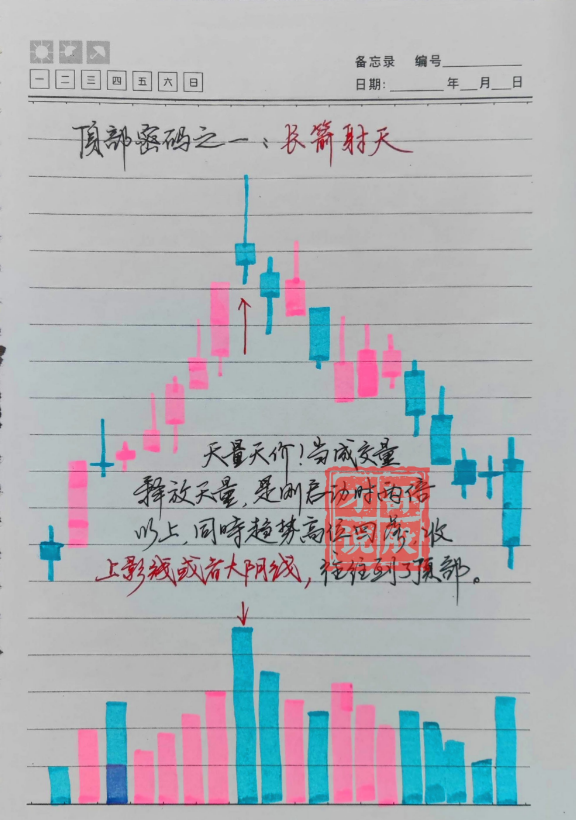 备忘录 编号
一 二 三 四 五 六 日
日期: 年 月 日
顶部密码之一：长箭射天
天量天价！当成交量
释放天量，是刚启动时两倍
以上，同时趋势高位回落，收
上影线或者大阴线，往往到了顶部。